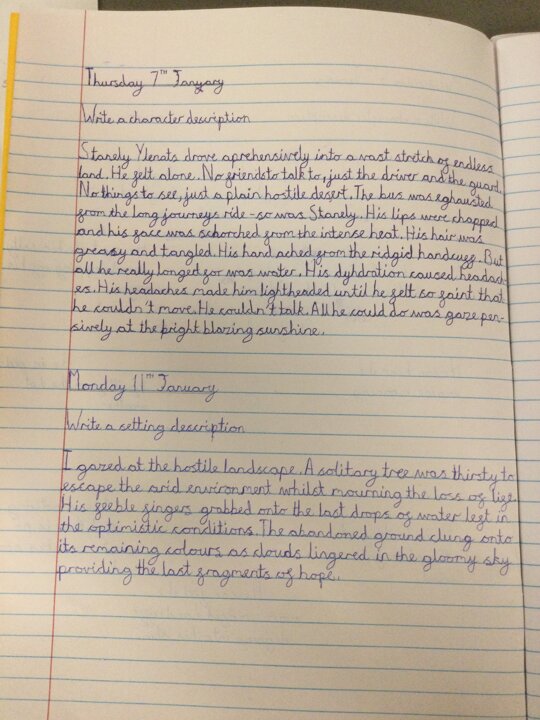 Thursday 7th January
Write a character description
Stanely Ylenats drove aprehensively into a vast stretch of endless
land. He felt alone. No friends to talk to, just the driver and the guard.
No things to see, just a plain hostile desert. The bus was exhausted
from the long journeys ride - so was Stanely. His lips were chapped
and his face was schorched from the intense heat. His hair was
greasy and tangled. His hand ached from the ridgid handcuff. But
all he really longed for was water. His dyhdration caused headach-
es. His headaches made him lightheaded until he felt so faint that
he couldn't move. He couldn't talk. All he could do was gaze pen-
sively at the bright blazing sunshine.
Monday 11th January
Write a setting description
I gazed at the hostile landscape. A solitary tree was thirsty to
escape the arid environment whilst mourning the loss of life.
His feeble fingers grabbed onto the last drops of water left in
the optimistic conditions. The abandoned ground clung onto
its remaining colours as clouds lingered in the gloomy sky
providing the last fragments of hope.